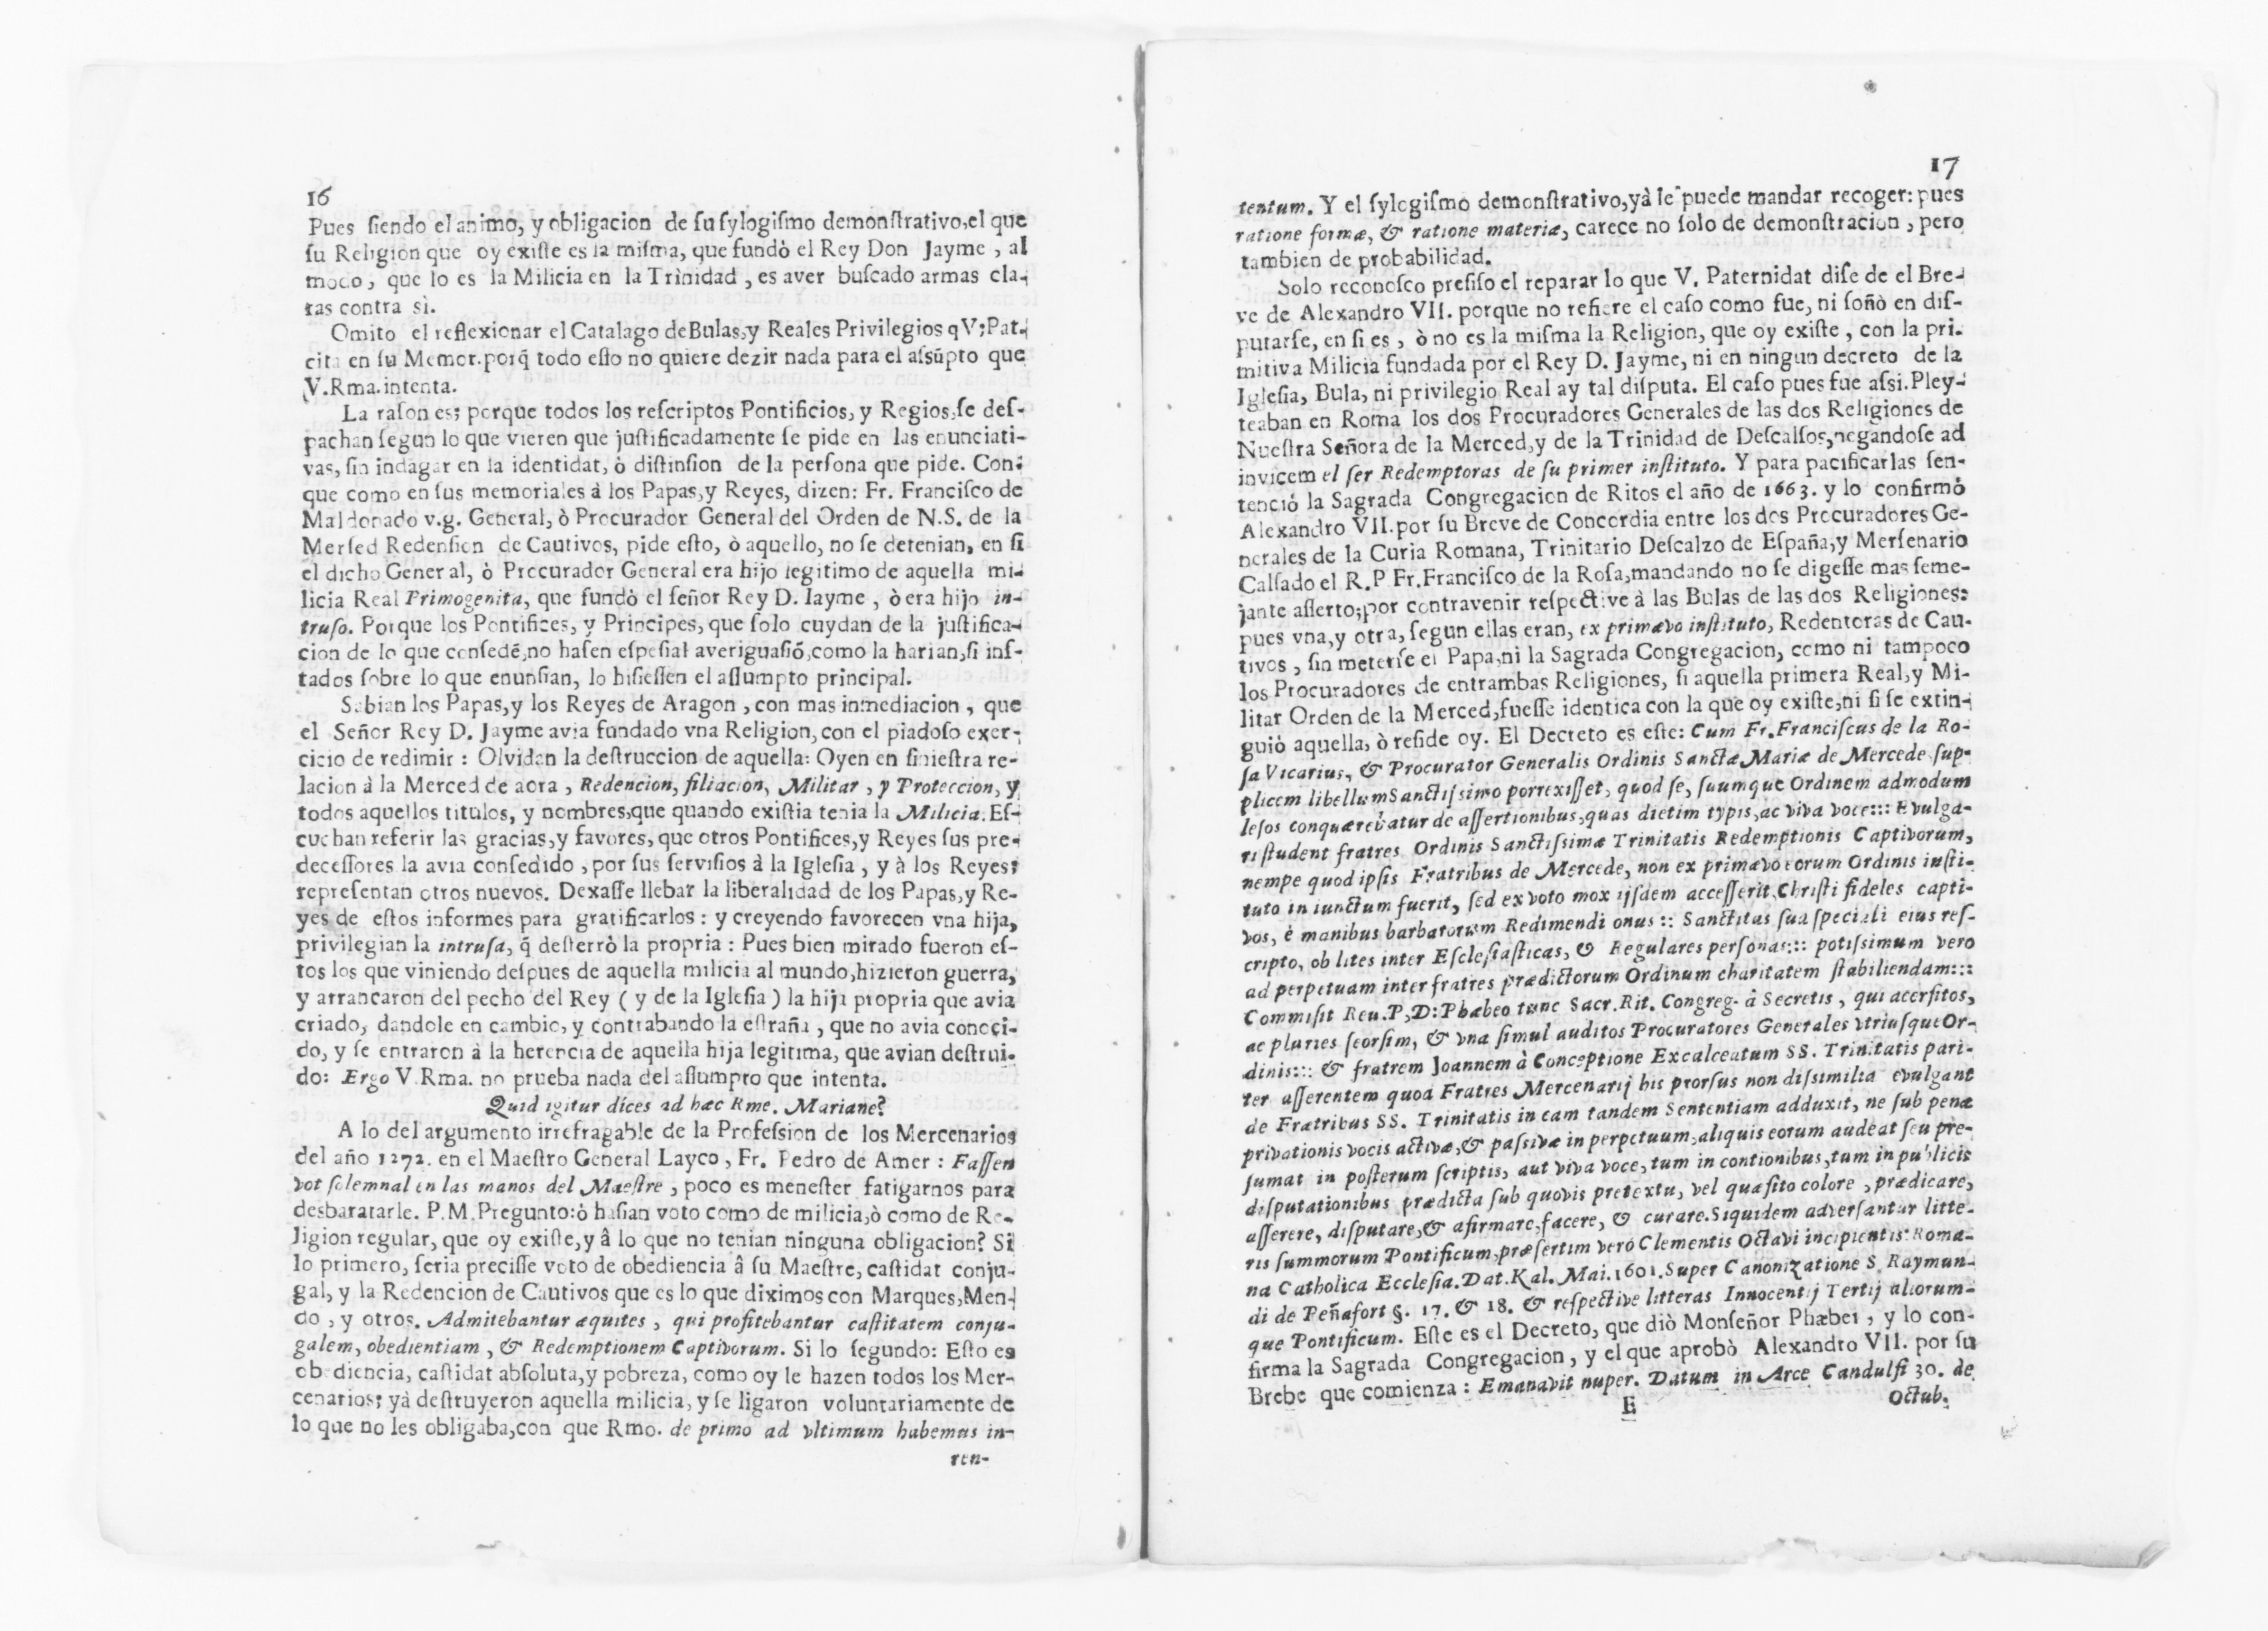 16
Pues ſiendo el animo, y obligacion de ſu ſylogiſmo demonſtrativo,el que
ſu Religion que oy exiſte es la miſma, que fundò el Rey Don Jayme , al
modo, que lo es la Milicia en la Trinidad , es aver buſcado armas cla-
ras contra sì.
Omito el reflexionar el Catalago de Bulas,y Reales Privilegios q V. Pat.
cita en ſu Memor.porq̃ todo eſto no quiere dezir nada para el aſsũpto que
V.Rma.intenta.
La raſon es; porque todos los reſcriptos Pontificios, y Regios,ſe deſ-
pachan ſegun lo que vieren que juſtificadamente ſe pide en las enunciati-
vas, ſin indagar en la identidat, ò diſtinſion de la perſona que pide. Con-
que como en ſus memoriales à los Papas,y Reyes, dizen: Fr. Franciſco de
Maldonado v.g. General, ò Procurador General del Orden de N.S. de la
Merſed Redenſion de Cautivos, pide eſto, ò aquello, no ſe detenian, en ſi
el dicho General, ò Procurador General era hijo legitimo de aquella mi-
licia Real Primogenita, que fundò el ſeñor Rey D. Iayme , ò era hijo in-
truſo. Porque los Pontifices, y Principes, que ſolo cuydan de la juſtifica-
cion de lo que conſedẽ,no haſen eſpeſial averiguaſiõ,como la harian,ſi inſ-
tados ſobre lo que enunſian, lo hiſieſſen el aſſumpto principal.
Sabian los Papas,y los Reyes de Aragon , con mas inmediacion , que
el Señor Rey D. Jayme avia fundado vna Religion, con el piadoſo exer-
cicio de redimir : Olvidan la deſtruccion de aquella: Oyen en ſinieſtra re-
lacion à la Merced de aora , Redencion, filiacion, Militar , y Proteccion, y
todos aquellos titulos, y nombres,que quando exiſtia tenia la Milicia: Eſ-
cuchan referir las gracias,y favores, que otros Pontifices,y Reyes ſus pre-
deceſſores la avia conſedido , por ſus ſerviſios à la Igleſia , y à los Reyes;
repreſentan otros nuevos. Dexaſſe llebar la liberalidad de los Papas,y Re-
yes de eſtos informes para gratificarlos : y creyendo favorecen vna hija,
privilegian la intruſa, q̃ deſterrò la propria : Pues bien mirado fueron eſ-
tos los que viniendo deſpues de aquella milicia al mundo,hizieron guerra,
y arrancaron del pecho del Rey ( y de la Igleſia ) la hija propria que avia
criado, dandole en cambio, y contrabando la eſtraña , que no avia conoci-
do, y ſe entraron à la herencia de aquella hija legitima, que avian deſtrui-
do: Ergo V.Rma. no prueba nada del aſſumpto que intenta.
Quid igitur dices ad hæc Rme. Mariane?
A lo del argumento irrefragable de la Profeſsion de los Mercenarios
del año 1272. en el Maeſtro General Layco , Fr. Pedro de Amer : Faſſen
vot ſolemnal en las manos del Maeſtre , poco es meneſter fatigarnos para
desbaratarle. P.M.Pregunto:ò haſian voto como de milicia,ò como de Re-
ligion regular, que oy exiſte,y â lo que no tenian ninguna obligacion? Si
lo primero, ſeria preciſſe voto de obediencia â ſu Maeſtre, caſtidat conju-
gal, y la Redencion de Cautivos que es lo que diximos con Marques,Men-
do , y otros. Admitebantur æquites , qui profitebantur caſtitatem conju-
galem, obedientiam , & Redemptionem Captivorum. Si lo ſegundo: Eſto es
obediencia, caſtidat abſoluta,y pobreza, como oy le hazen todos los Mer-
cenarios; yà deſtruyeron aquella milicia, y ſe ligaron voluntariamente de
lo que no les obligaba,con que Rmo. de primo ad vltimum habemus in-
ten-
17
tentum. Y el ſylogiſmo demonſtrativo,yà le puede mandar recoger: pues
ratione formæ, & ratione materiæ, carece no ſolo de demonſtracion , pero
tambien de probabilidad.
Solo reconoſco preſiſo el reparar lo que V. Paternidat diſe de el Bre-
ve de Alexandro VII. porque no refiere el caſo como fue, ni ſoñò en diſ-
putarſe, en ſi es , ò no es la miſma la Religion, que oy exiſte , con la pri-
mitiva Milicia fundada por el Rey D. Jayme, ni en ningun decreto de la
Igleſia, Bula, ni privilegio Real ay tal diſputa. El caſo pues fue aſsi. Pley-
teaban en Roma los dos Procuradores Generales de las dos Religiones de
Nueſtra Señora de la Merced,y de la Trinidad de Deſcalſos,negandoſe ad
invicem el ſer Redemptoras de ſu primer inſtituto. Y para pacificarlas ſen-
tenciò la Sagrada Congregacion de Ritos el año de 1663. y lo confirmò
Alexandro VII.por ſu Breve de Concordia entre los dos Procuradores Ge-
nerales de la Curia Romana, Trinitario Deſcalzo de Eſpaña,y Merſenario
Calſado el R.P. Fr.Franciſco de la Roſa,mandando no ſe digeſſe mas ſeme-
jante aſſerto;por contravenir reſpective à las Bulas de las dos Religiones:
pues vna,y otra, ſegun ellas eran, ex primævo inſtituto, Redentoras de Cau-
tivos , ſin meterſe el Papa,ni la Sagrada Congregacion, como ni tampoco
los Procuradores de entrambas Religiones, ſi aquella primera Real,y Mi-
litar Orden de la Merced,fueſſe identica con la que oy exiſte,ni ſi ſe extin-
guiò aquella, ò reſide oy. El Decreto es eſte: Cum Fr.Franciſcus de la Ro-
ſa Vicarius, & Procurator Generalis Ordinis Sanctæ Mariæ de Mercede ſup-
plicem libellum Sanctiſsimo porrexiſſet, quod ſe, ſuumque Ordinem admodum
leſos conquærebatur de aſſertionibus,quas dietim typis,ac viva voce::: Evulga-
ri ſtudent fratres Ordinis Sanctiſsimæ Trinitatis Redemptionis Captivorum,
nempe quod ipſis Fratribus de Mercede, non ex primævo eorum Ordinis inſti-
tuto in iunctum fuerit, ſed ex voto mox ijſdem acceſſerit Chriſti fideles capti-
vos, è manibus barbarorum Redimendi onus :: Sanctitas ſua ſpeciali eius reſ-
cripto, ob lites inter Eſcleſiaſticas, & Regulares perſonas::: potiſsimum vero
ad perpetuam inter fratres prædictorum Ordinum charitatem ſtabiliendam:::
Commiſit Reu.P,D:Phæbeo tunc Sacr.Rit. Congreg. à Secretis , qui acerſitos,
ac pluries ſeorſim, & vna ſimul auditos Procuratores Generales vtriuſque Or-
dinis::: & fratrem Joannem à Conceptione Excalceatum SS. Trinitatis pari-
ter aſſerentem quod Fratres Mercenarij his prorſus non diſsimilia evulgant
de Fratribus SS. Trinitatis in eam tandem Sententiam adduxit, ne ſub penæ
privationis vocis activæ,& paſsivæ in perpetuum,aliquis eorum audeat ſeu pre-
ſumat in poſterum ſcriptis, aut viva voce, tum in contionibus,tum in publicis
diſputationibus prædicta ſub quovis pretextu, vel quæſito colore , prædicare,
aſſerere, diſputare,& afirmare,facere, & curare.Siquidem adverſantur litte-
ris ſummorum Pontificum,præſertim verò Clementis Octavi incipientis: Roma-
na Catholica Eccleſia.Dat.Kal. Mai.1601.Super Canonizatione S. Raymun-
di de Peñafort §. 17. & 18. & reſpective litteras Innocentij Tertij aliorum-
que Pontificum. Eſte es el Decreto, que diò Monſeñor Phæbei , y lo con-
firma la Sagrada Congregacion , y el que aprobò Alexandro VII. por ſu
Brebe que comienza : Emanavit nuper. Datum in Arce Candulfi 30. de
E
Octub.